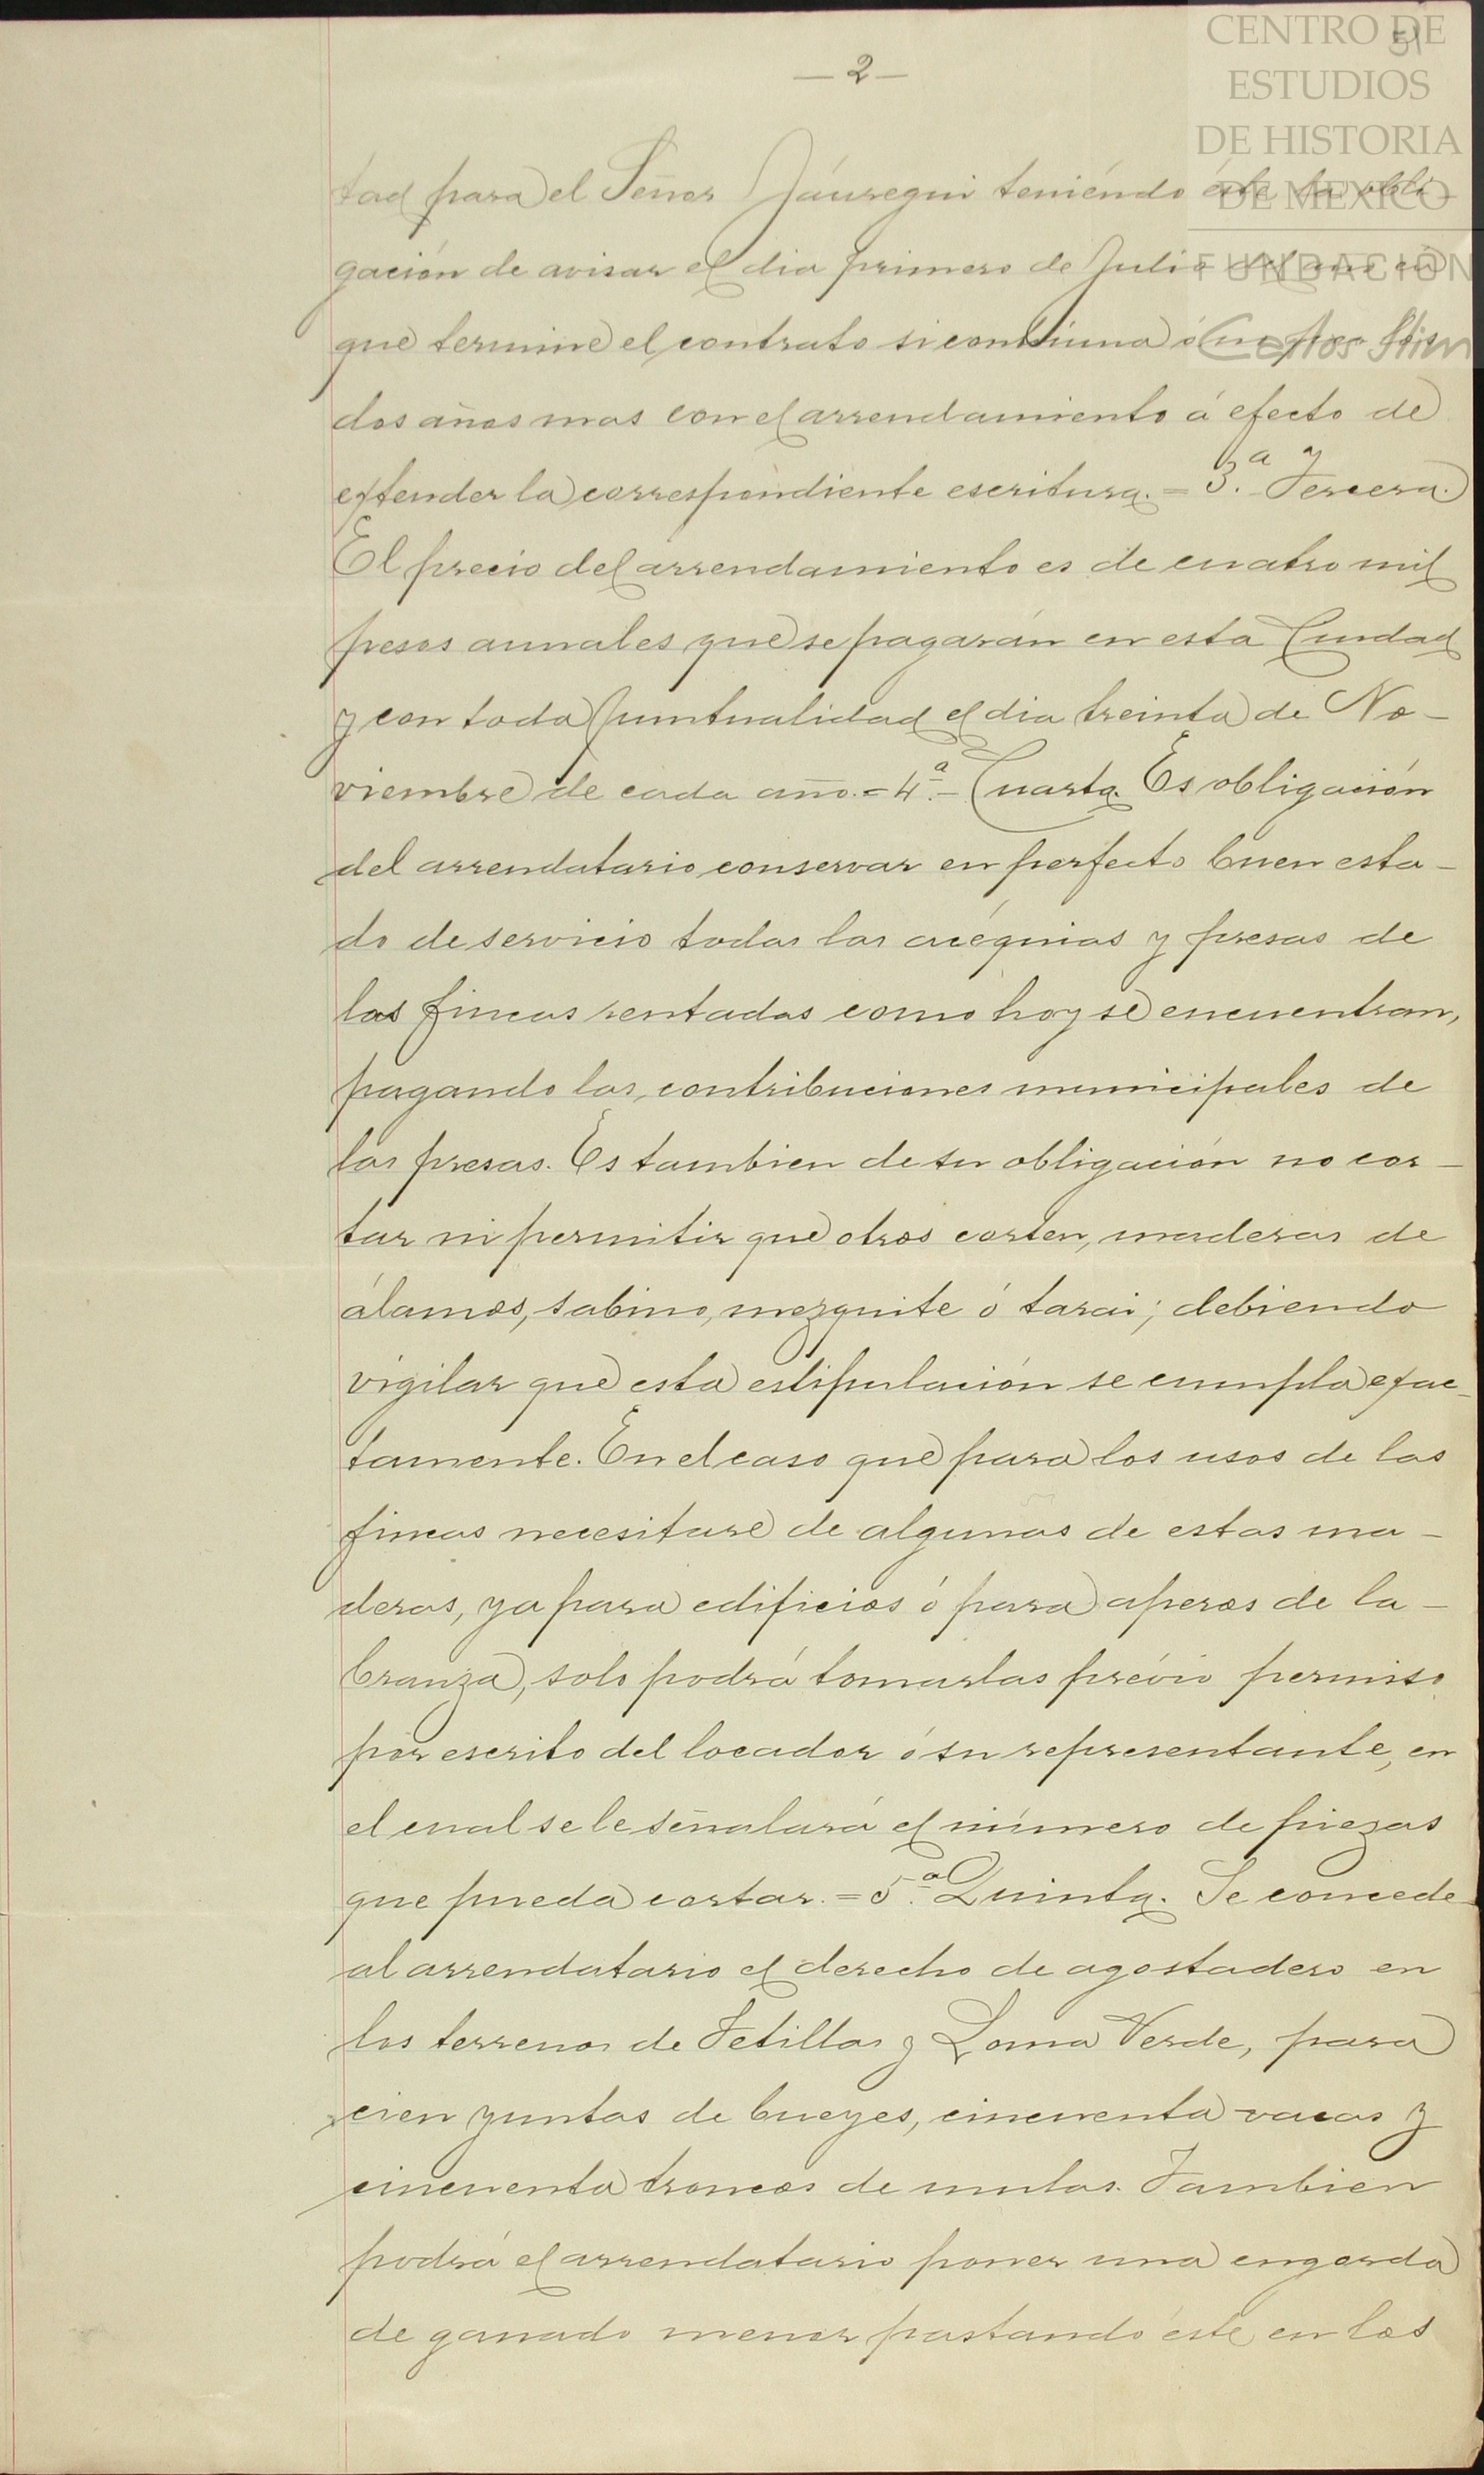 — 2 —
51
CENTRO DE
ESTUDIOS
DE HISTORIA
DE MEXICO
FUNDACION
Carlos Slim
tad para el Señor Jáuregui teniéndo éste la obli-
gación de avisar el dia primero de Julio del año en
que termine el contrato si continua ó no por los
dos años mas con el arrendamiento á efecto de
extender la correspondiente escritura. = 3.ª Tercera.
El precio del arrendamiento es de cuatro mil
pesos anuales que se pagarán en esta Ciudad
y con toda puntualidad el dia treinta de No-
viembre de cada año. = 4.ª - Cuarta. Es obligación
del arrendatario conservar en perfecto buen esta-
do de servicio todas las acéquias y presas de
las fincas rentadas como hoy se encuentran,
pagando las contribuciones municipales de
las presas. Es tambien de su obligación no cor-
tar ni permitir que otros corten, maderas de
álamos, sabino, mezquite ó tarai; debiendo
vigilar que esta estipulación se cumpla exac-
tamente. En el caso que para los usos de las
fincas necesitare de algunas de estas ma-
deras, ya para edificios ó para aperos de la-
branza, solo podrá tomarlas prévio permiso
por escrito del locador ó su representante, en
el cual se le señalará el número de piezas
que pueda cortar. = 5.ª Quinta. Se concede
al arrendatario el derecho de agostadero en
los terrenos de Tetillas y Loma Verde, para
cien yuntas de bueyes, cincuenta vacas y
cincuenta troncos de mulas. Tambien
podrá el arrendatario poner una engorda
de ganado menor pastando éste en los